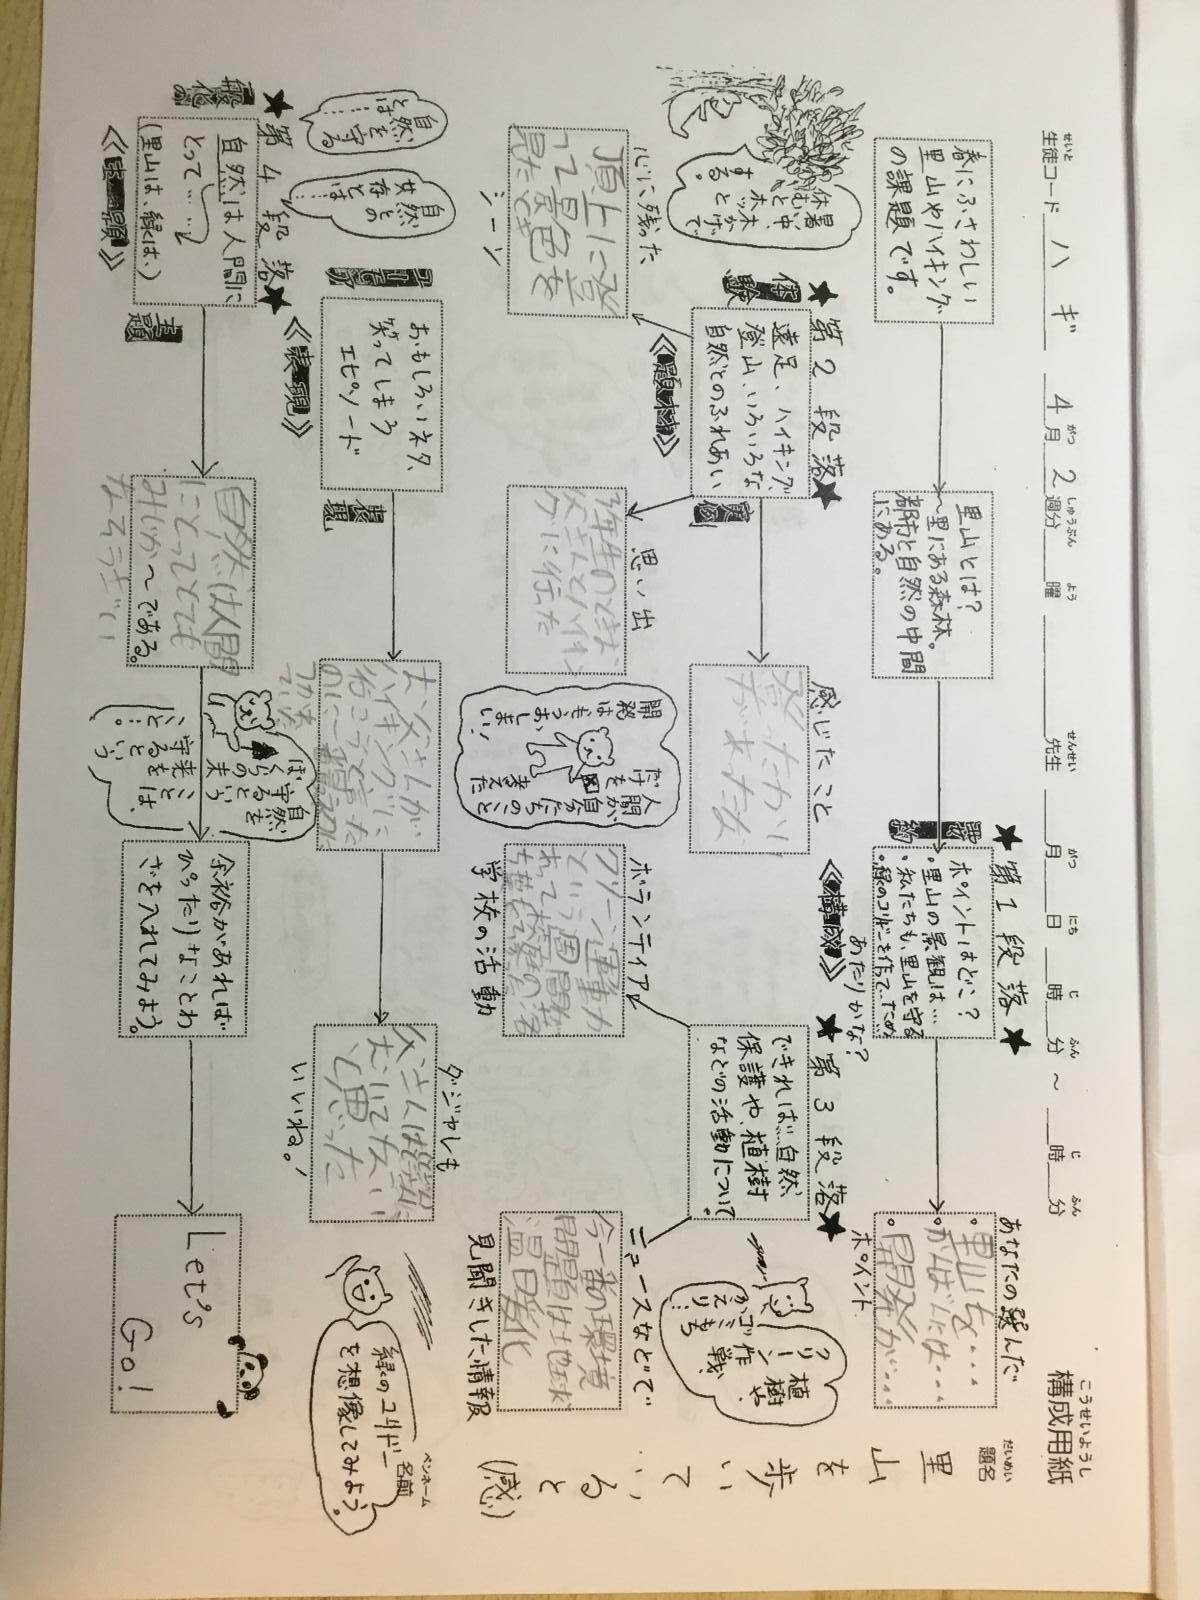 構成用紙
こうせいようし
生徒コード ハ ギ 4月 2週分 曜 先生 月 日 時 分 ～ 時 分
せいと がつ しゅうぶん よう せんせい がつ にち じ ふん じ ふん
題名
だいめい
里山を歩いていると
(感)
ペンネーム
名前
春にふさわしい
里山やハイキング
の課題です。
里山とは?
～里にある森林。
都市と自然の中間
にある。
★第1段落★
要約
ポイントはどこ?
・里山の景観は…
・私たちも、里山を守る
・緑のコリドーを作っていため
あたりかな?
《構成》
あなたの選んだ
・里山を・・・・
・開発が・・・
ポイント
暑い中、
木かげで
休むと
ホッと
する。
★第2段落★
体験
遠足、ハイキング、
登山、いろいろな
自然とのふれあい
《題材》
実例
心に残った
頂上に登
って景色を
見たとき
シーン
思い出
感じたこと
登ったかい
があったな
★第3段落★
できれば自然
保護や、植樹
などの活動について。
植樹や、
クリーン
作戦、
ゴミもち
かえり…
ボランティア
学校の活動
ニュースなどで
今一番の環境
問題は地球
温暖化
見聞きした情報
開発
はもうおしまい!
人間
だけを
考えた
自分たちのこと
ユーモア
おもしろいネタ、
笑ってしまう
エピソード
《表現》
表現
お父さんが
ハイキングに
行こうと言った
のに～
ダジャレも
と思った
いいね。!
緑のコリドー
を想像してみよう。
自然
を守る
とは……
自然
との
共存
とは…
★第4段落★
最後の
自然は人間に
とって……
(里山は、緑は、)
《主題》
主題
自然は人間
にとってとても
みじか～である。
自然を
守るという
ことは、
ぼくらの未
来を
守ると
いう
こと…。
余裕があれば
ぴったりなことわ
ざを入れてみよう。
Let's
Go!